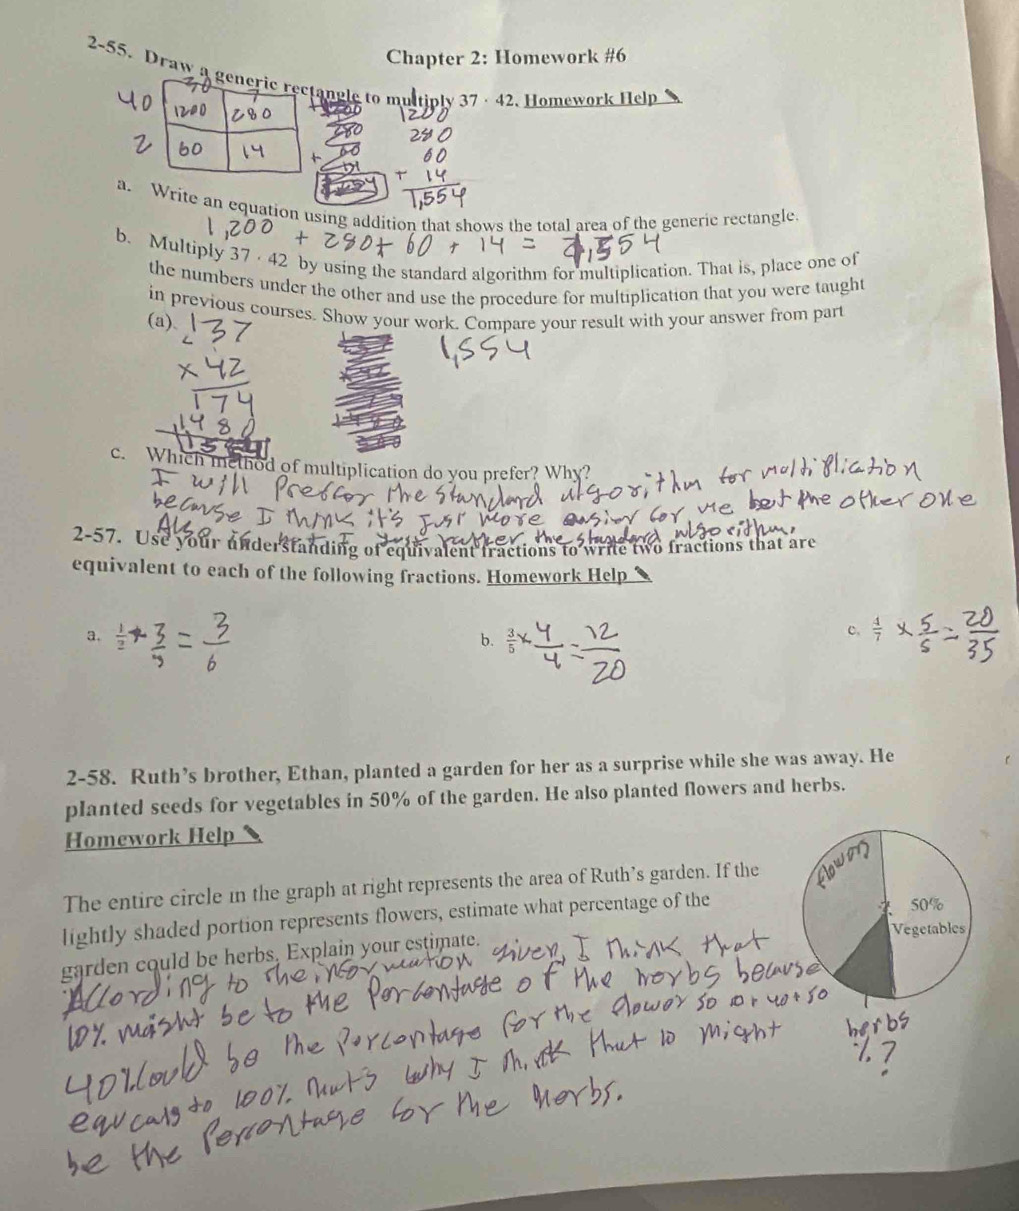 Chapter 2: Homework #6
2-55. Draw a generic rectangle to multiply 37 · 42. Homework Help
30 7
40 1200 280
2 60 14
1200
280
60
+ 14
1,554
a. Write an equation using addition that shows the total area of the generic rectangle.
1,200 + 280 + 60 + 14 = 1,554
b. Multiply 37 · 42 by using the standard algorithm for multiplication. That is, place one of
the numbers under the other and use the procedure for multiplication that you were taught
in previous courses. Show your work. Compare your result with your answer from part
(a).
37
× 42
174
1480
1,554
c. Which method of multiplication do you prefer? Why?
I will the standard algorithm for
because I think it's just more for me but the other one
Also I just rather the standard
2-57. Use your understanding of equivalent fractions to write two fractions that are
equivalent to each of the following fractions. Homework Help
a. 1/2 × 3/3 = 3/6
b. 3/5 × 4/4 = 12/20
c. 4/7 × 5/5 = 20/35
2-58. Ruth's brother, Ethan, planted a garden for her as a surprise while she was away. He
planted seeds for vegetables in 50% of the garden. He also planted flowers and herbs.
Homework Help
The entire circle in the graph at right represents the area of Ruth's garden. If the
lightly shaded portion represents flowers, estimate what percentage of the
garden could be herbs. Explain your estimate.
flowers
50%
Vegetables
herbs
%?
According to the information given, I think that
10% might be to the of the herbs because
40% could be the for the flower so 10 + 40 + 50
to 100% that's why I think that 10 might
be the for the herbs.